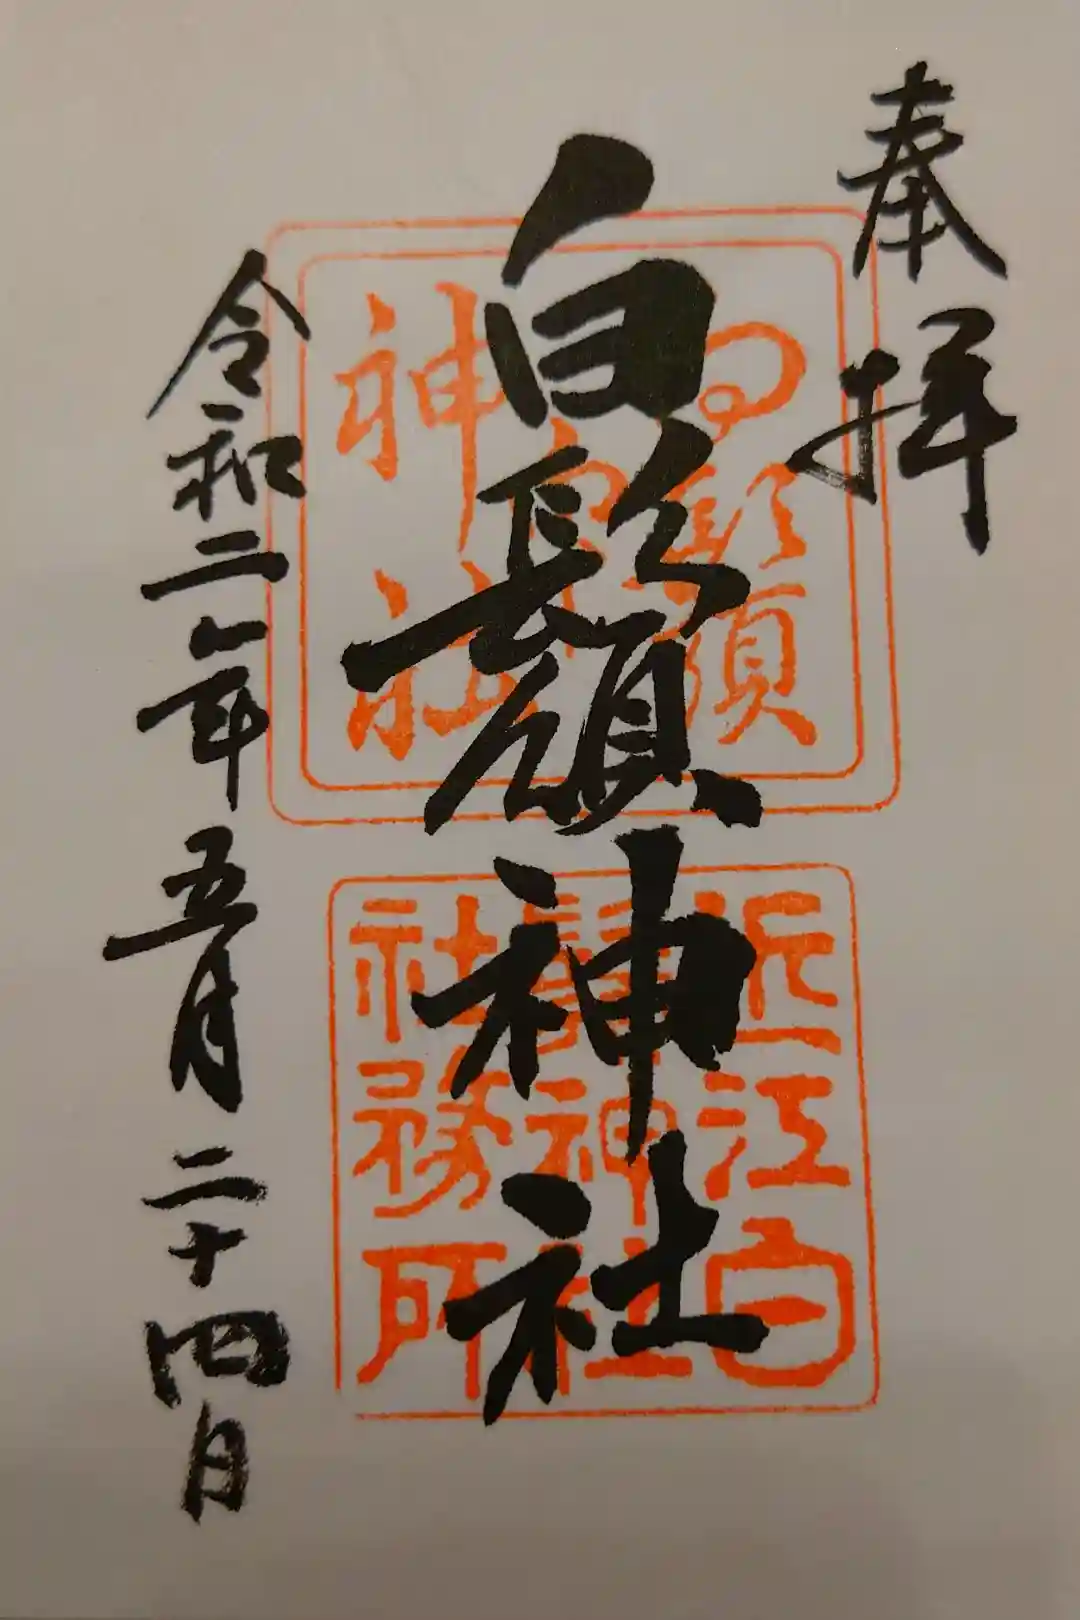 奉拝
白鬚神社
令和二年五月二十四日
白鬚
神社
近江白
鬚神社
社務所